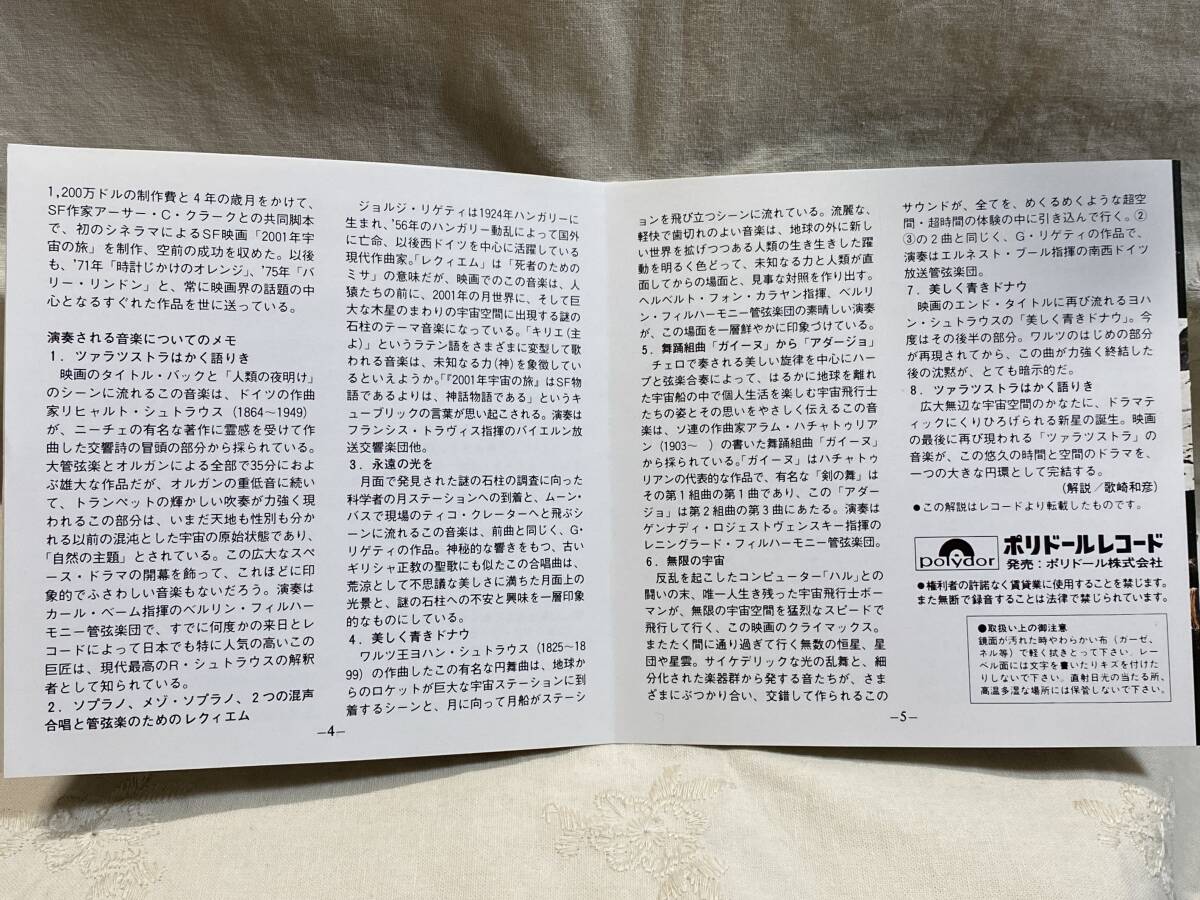 1,200万ドルの制作費と4年の歳月をかけて、
SF作家アーサー・C・クラークとの共同脚本
で、初のシネラマによるSF映画「2001年宇
宙の旅」を制作、空前の成功を収めた。以後
も、'71年「時計じかけのオレンジ」、'75年「バ
リー・リンドン」と、常に映画界の話題の中
心となるすぐれた作品を世に送っている。
演奏される音楽についてのメモ
1．ツァラツストラはかく語りき
映画のタイトル・バックと「人類の夜明け」
のシーンに流れるこの音楽は、ドイツの作曲
家リヒャルト・シュトラウス（1864～1949）
が、ニーチェの有名な著作に霊感を受けて作
曲した交響詩の冒頭の部分から採られている。
大管弦楽とオルガンによる全部で35分におよ
ぶ雄大な作品だが、オルガンの重低音に続い
て、トランペットの輝かしい吹奏が力強く現
われるこの部分は、いまだ天地も性別も分か
れる以前の混沌とした宇宙の原始状態であり、
「自然の主題」とされている。この広大なスペ
ース・ドラマの開幕を飾って、これほどに印
象的でふさわしい音楽もないだろう。演奏は
カール・ベーム指揮のベルリン・フィルハー
モニー管弦楽団で、すでに何度かの来日とレ
コードによって日本でも特に人気の高いこの
巨匠は、現代最高のR・シュトラウスの解釈
者として知られている。
2．ソプラノ、メゾ・ソプラノ、2つの混声
合唱と管弦楽のためのレクィエム
ジョルジ・リゲティは1924年ハンガリーに
生まれ、'56年のハンガリー動乱によって国外
に亡命、以後西ドイツを中心に活躍している
現代作曲家。「レクィエム」は「死者のための
ミサ」の意味だが、映画でのこの音楽は、人
猿たちの前に、2001年の月世界に、そして巨
大な木星のまわりの宇宙空間に出現する謎の
石柱のテーマ音楽になっている。「キリエ（主
よ）」というラテン語をさまざまに変型して歌
われる音楽は、未知なる力（神）を象徴してい
るといえようか。「『2001年宇宙の旅』はSF物
語であるよりは、神話物語である」というキ
ューブリックの言葉が思い起こされる。演奏は
フランシス・トラヴィス指揮のバイエルン放
送交響楽団他。
3．永遠の光を
月面で発見された謎の石柱の調査に向った
科学者の月ステーションへの到着と、ムーン・
バスで現場のティコ・クレーターへと飛ぶシ
ーンに流れるこの音楽は、前曲と同じく、G・
リゲティの作品。神秘的な響きをもつ、古い
ギリシャ正教の聖歌にも似たこの合唱曲は、
荒涼として不思議な美しさに満ちた月面上の
光景と、謎の石柱への不安と興味を一層印象
的なものにしている。
4．美しく青きドナウ
ワルツ王ヨハン・シュトラウス（1825～18
99）の作曲したこの有名な円舞曲は、地球か
らのロケットが巨大な宇宙ステーションに到
着するシーンと、月に向って月船がステーシ
—4—
ョンを飛び立つシーンに流れている。流麗な、
軽快で歯切れのよい音楽は、地球の外に新し
い世界を拡げつつある人類の生き生きした躍
動を明るく色どって、未知なる力と人類が直
面してからの場面と、見事な対照を作り出す。
ヘルベルト・フォン・カラヤン指揮、ベルリ
ン・フィルハーモニー管弦楽団の素晴しい演奏
が、この場面を一層鮮やかに印象づけている。
5．舞踊組曲「ガイーヌ」から「アダージョ」
チェロで奏される美しい旋律を中心にハー
プと弦楽合奏によって、はるかに地球を離れ
た宇宙船の中で個人生活を楽しむ宇宙飛行士
たちの姿とその思いをやさしく伝えるこの音
楽は、ソ連の作曲家アラム・ハチャトゥリア
ン（1903～　）の書いた舞踊組曲「ガイーヌ」
から採られている。「ガイーヌ」はハチャトゥ
リアンの代表的な作品で、有名な「剣の舞」は
その第1組曲の第1曲であり、この「アダー
ジョ」は第2組曲の第3曲にある。演奏は
ゲンナディ・ロジェストヴェンスキー指揮の
レニングラード・フィルハーモニー管弦楽団。
6．無限の宇宙
反乱を起こしたコンピューター「ハル」との
闘いの末、唯一人生き残った宇宙飛行士ボー
マンが、無限の宇宙空間を猛烈なスピードで
飛行して行く、この映画のクライマックス。
またたく間に通り過ぎて行く無数の恒星、星
団や星雲。サイケデリックな光の乱舞と、細
分化された楽器群から発する音たちが、さま
ざまにぶつかり合い、交錯して作られるこの
—5—
サウンドが、全てを、めくるめくような超空
間・超時間の体験の中に引き込んで行く。②
③の2曲と同じく、G・リゲティの作品で、
演奏はエルネスト・ブール指揮の南西ドイツ
放送管弦楽団。
7．美しく青きドナウ
映画のエンド・タイトルに再び流れるヨハ
ン・シュトラウスの「美しく青きドナウ」。今
度はその後半の部分。ワルツのはじめの部分
が再現されてから、この曲が力強く終結した
後の沈黙が、とても暗示的だ。
8．ツァラツストラはかく語りき
広大無辺な宇宙空間のかなたに、ドラマテ
ィックにくりひろげられる新星の誕生。映画
の最後に再び現われる「ツァラツストラ」の
音楽が、この悠久の時間と空間のドラマを、
一つの大きな円環として完結する。
（解説／歌崎和彦）
●この解説はレコードより転載したものです。
polydor
ポリドールレコード
発売：ポリドール株式会社
●権利者の許諾なく賃貸業に使用することを禁じます。
また無断で録音することは法律で禁じられています。
●取扱い上の御注意
鏡面が汚れた時やわらかい布（ガーゼ、
ネル等）で軽く拭きとって下さい。レ
ーベル面には文字を書いたりキズを付けた
りしないで下さい。直射日光の当たる所、
高温多湿な場所には保管しないで下さい。